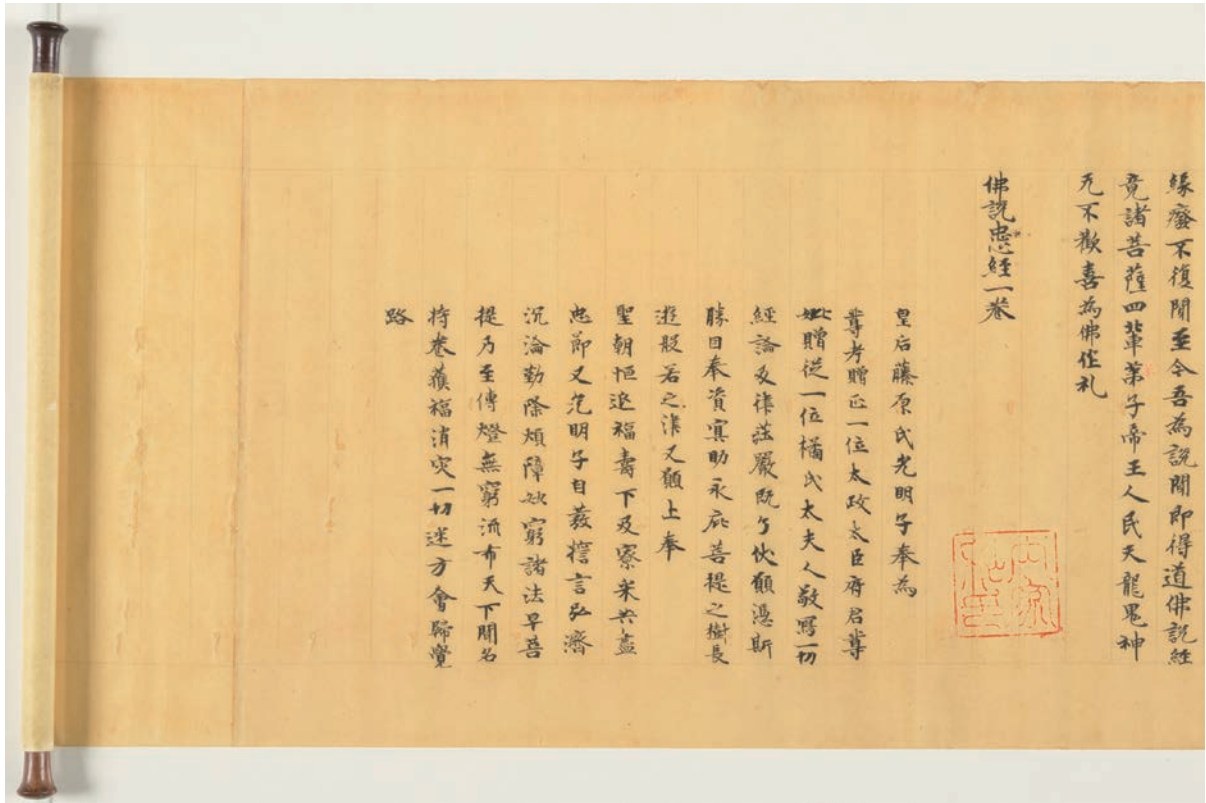 縁癈不復聞至令吾為説聞即得道佛説經
竟諸菩薩四軰苐子帝王人民天龍鬼神
无不歡喜為佛作礼
佛説忠心經一卷
内家私印
皇后藤原氏光明子奉為
尊考贈正一位太政太臣府君尊
妣贈従一位橘氏太夫人敬寫一切
經論及律莊嚴既了伏願憑斯
勝因奉資冥助永庇菩提之樹長
遊般若之津又願上奉
聖朝恒延福壽下及寮采共盡
忠節又光明子自發誓言弘濟
沉淪勤除煩障妙窮諸法早菩
提乃至傳燈無窮流布天下聞名
持卷獲福消灾一切迷方會歸覺
路